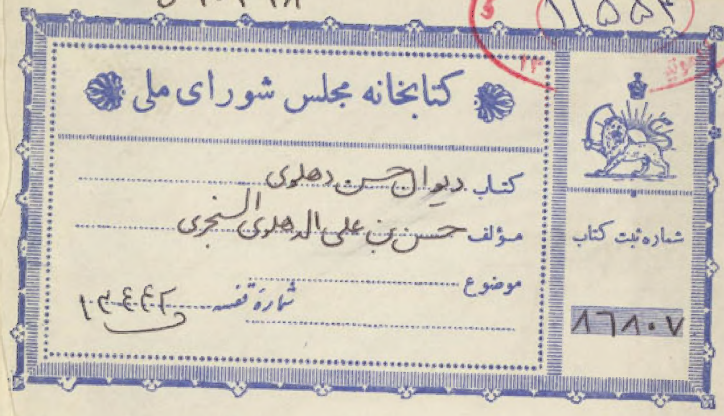 ۱۱۵۵۴
کتابخانه مجلس شورای ملی
کتاب دیوان حسن دهلوی
مؤلف حسن بن علی الدهلوی السنجری
موضوع
شمارهٔ قفسه ۱۳۴۴۲
شماره ثبت کتاب
۸۶۸۰۷